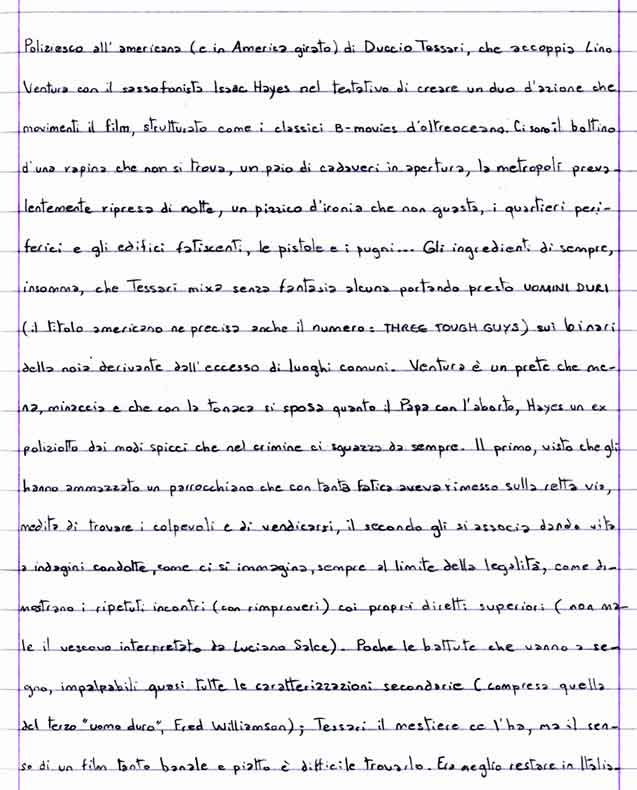 Poliziesco all'americana (e in America girato) di Duccio Tessari, che accoppia Lino
Ventura con il sassofonista Isaac Hayes nel tentativo di creare un duo d'azione che
movimenti il film, strutturato come i classici B-movies d'oltreoceano. Ci sono il bottino
d'una rapina che non si trova, un paio di cadaveri in apertura, la metropoli preva-
lentemente ripresa di notte, un pizzico d'ironia che non guasta, i quartieri peri-
ferici e gli edifici fatiscenti, le pistole e i pugni... Gli ingredienti di sempre,
insomma, che Tessari mixa senza fantasia alcuna portando presto UOMINI DURI
(il titolo americano ne precisa anche il numero: THREE TOUGH GUYS) sui binari
della noia derivante dall'eccesso di luoghi comuni. Ventura è un prete che me-
na, minaccia e che con la tonaca si sposa quanto il Papa con l'aborto, Hayes un ex
poliziotto dai modi spicci che nel crimine ci sguazza da sempre. Il primo, visto che gli
hanno ammazzato un parrocchiano che con tanta fatica aveva rimesso sulla retta via,
medita di trovare i colpevoli e di vendicarsi, il secondo gli si associa dando vita
a indagini condotte, come ci si immagina, sempre al limite della legalità, come di-
mostrano i ripetuti incontri (con rimproveri) coi propri diretti superiori (non ma-
le il vescovo interpretato da Luciano Salce). Poche le battute che vanno a se-
gno, impalpabili quasi tutte le caratterizzazioni secondarie (compresa quella
del terzo "uomo duro", Fred Williamson); Tessari il mestiere ce l'ha, ma il sen-
so di un film tanto banale e piatto è difficile trovarlo. Era meglio restare in Italia.